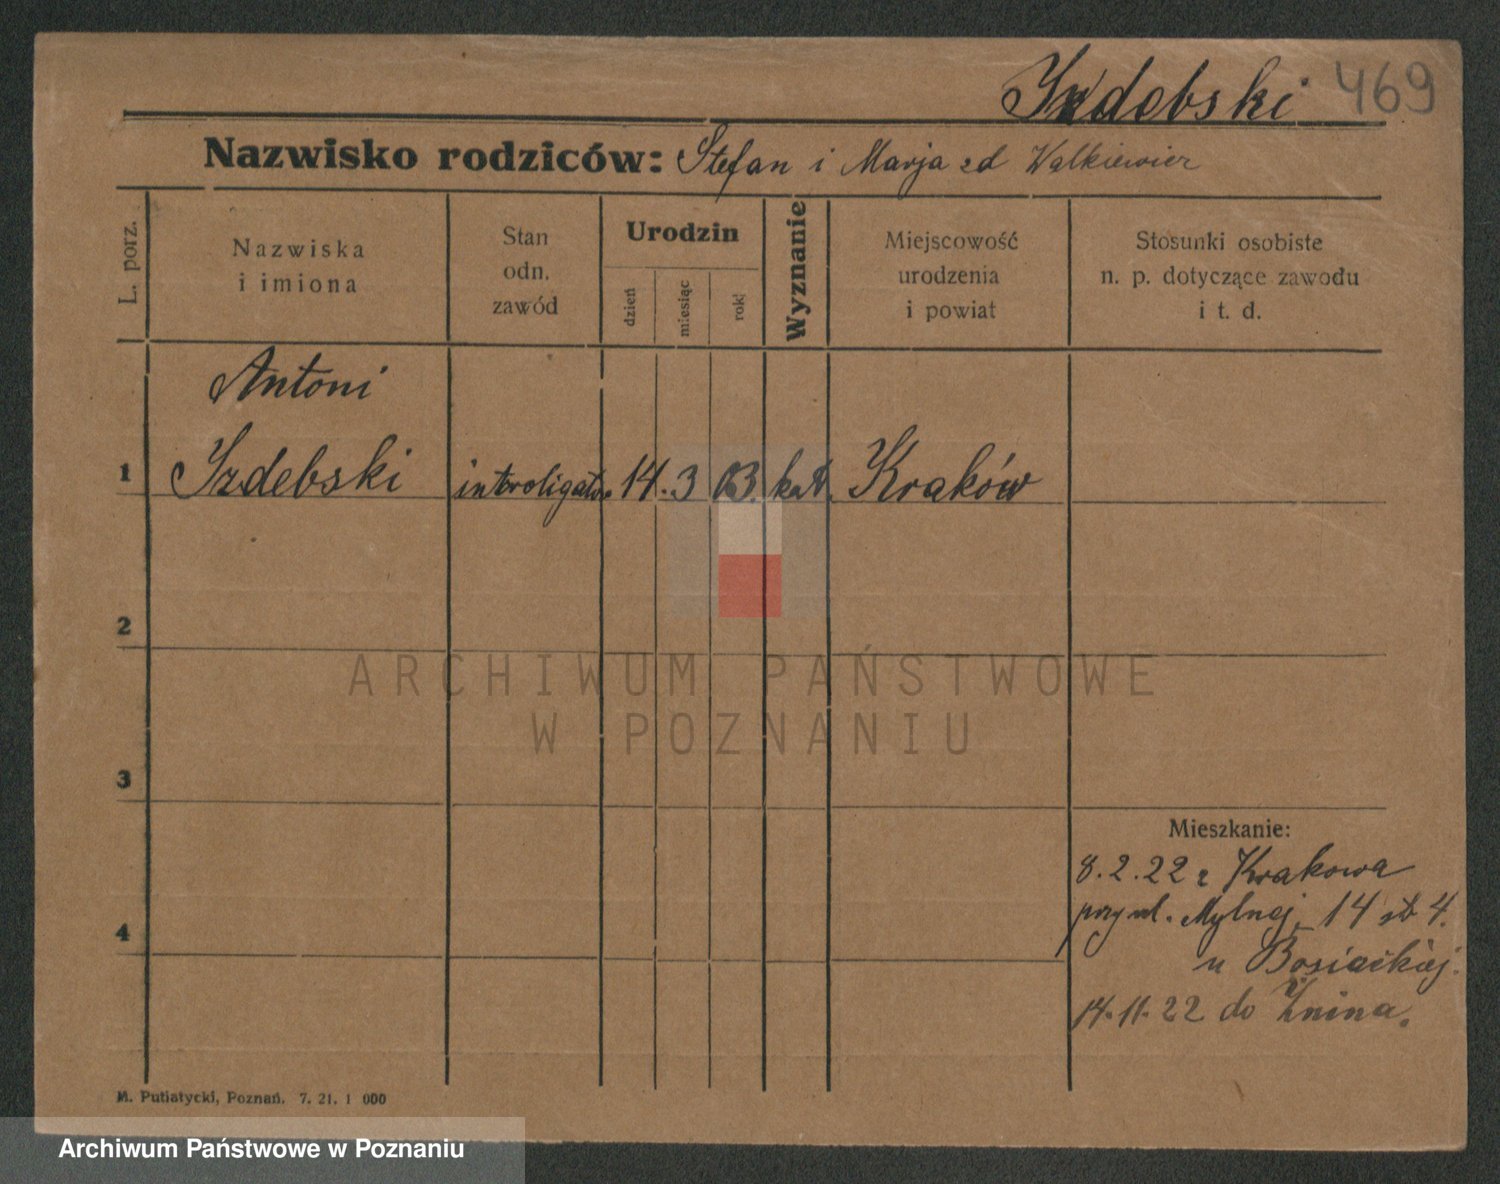 Izdebski 469
Nazwisko rodziców: Stefan i Marja zd Walkiewicz
L. porz.
Nazwiska
i imiona
Stan
odn.
zawód
Urodzin
dzień
miesiąc
rok
Wyznanie
Miejscowość
urodzenia
i powiat
Stosunki osobiste
n. p. dotyczące zawodu
i t. d.
Antoni
1 Izdebski introligator 14. 3 03. kat. Kraków
2
ARCHIWUM PAŃSTWOWE
W POZNANIU
3
Mieszkanie:
8.2.22 z Krakowa
4 przy ul. Mylnej 14 4.
u Bosiackiej.
14.11.22 do Żnina.
M. Putiatycki, Poznań. 7. 21. 1 000
Archiwum Państwowe w Poznaniu